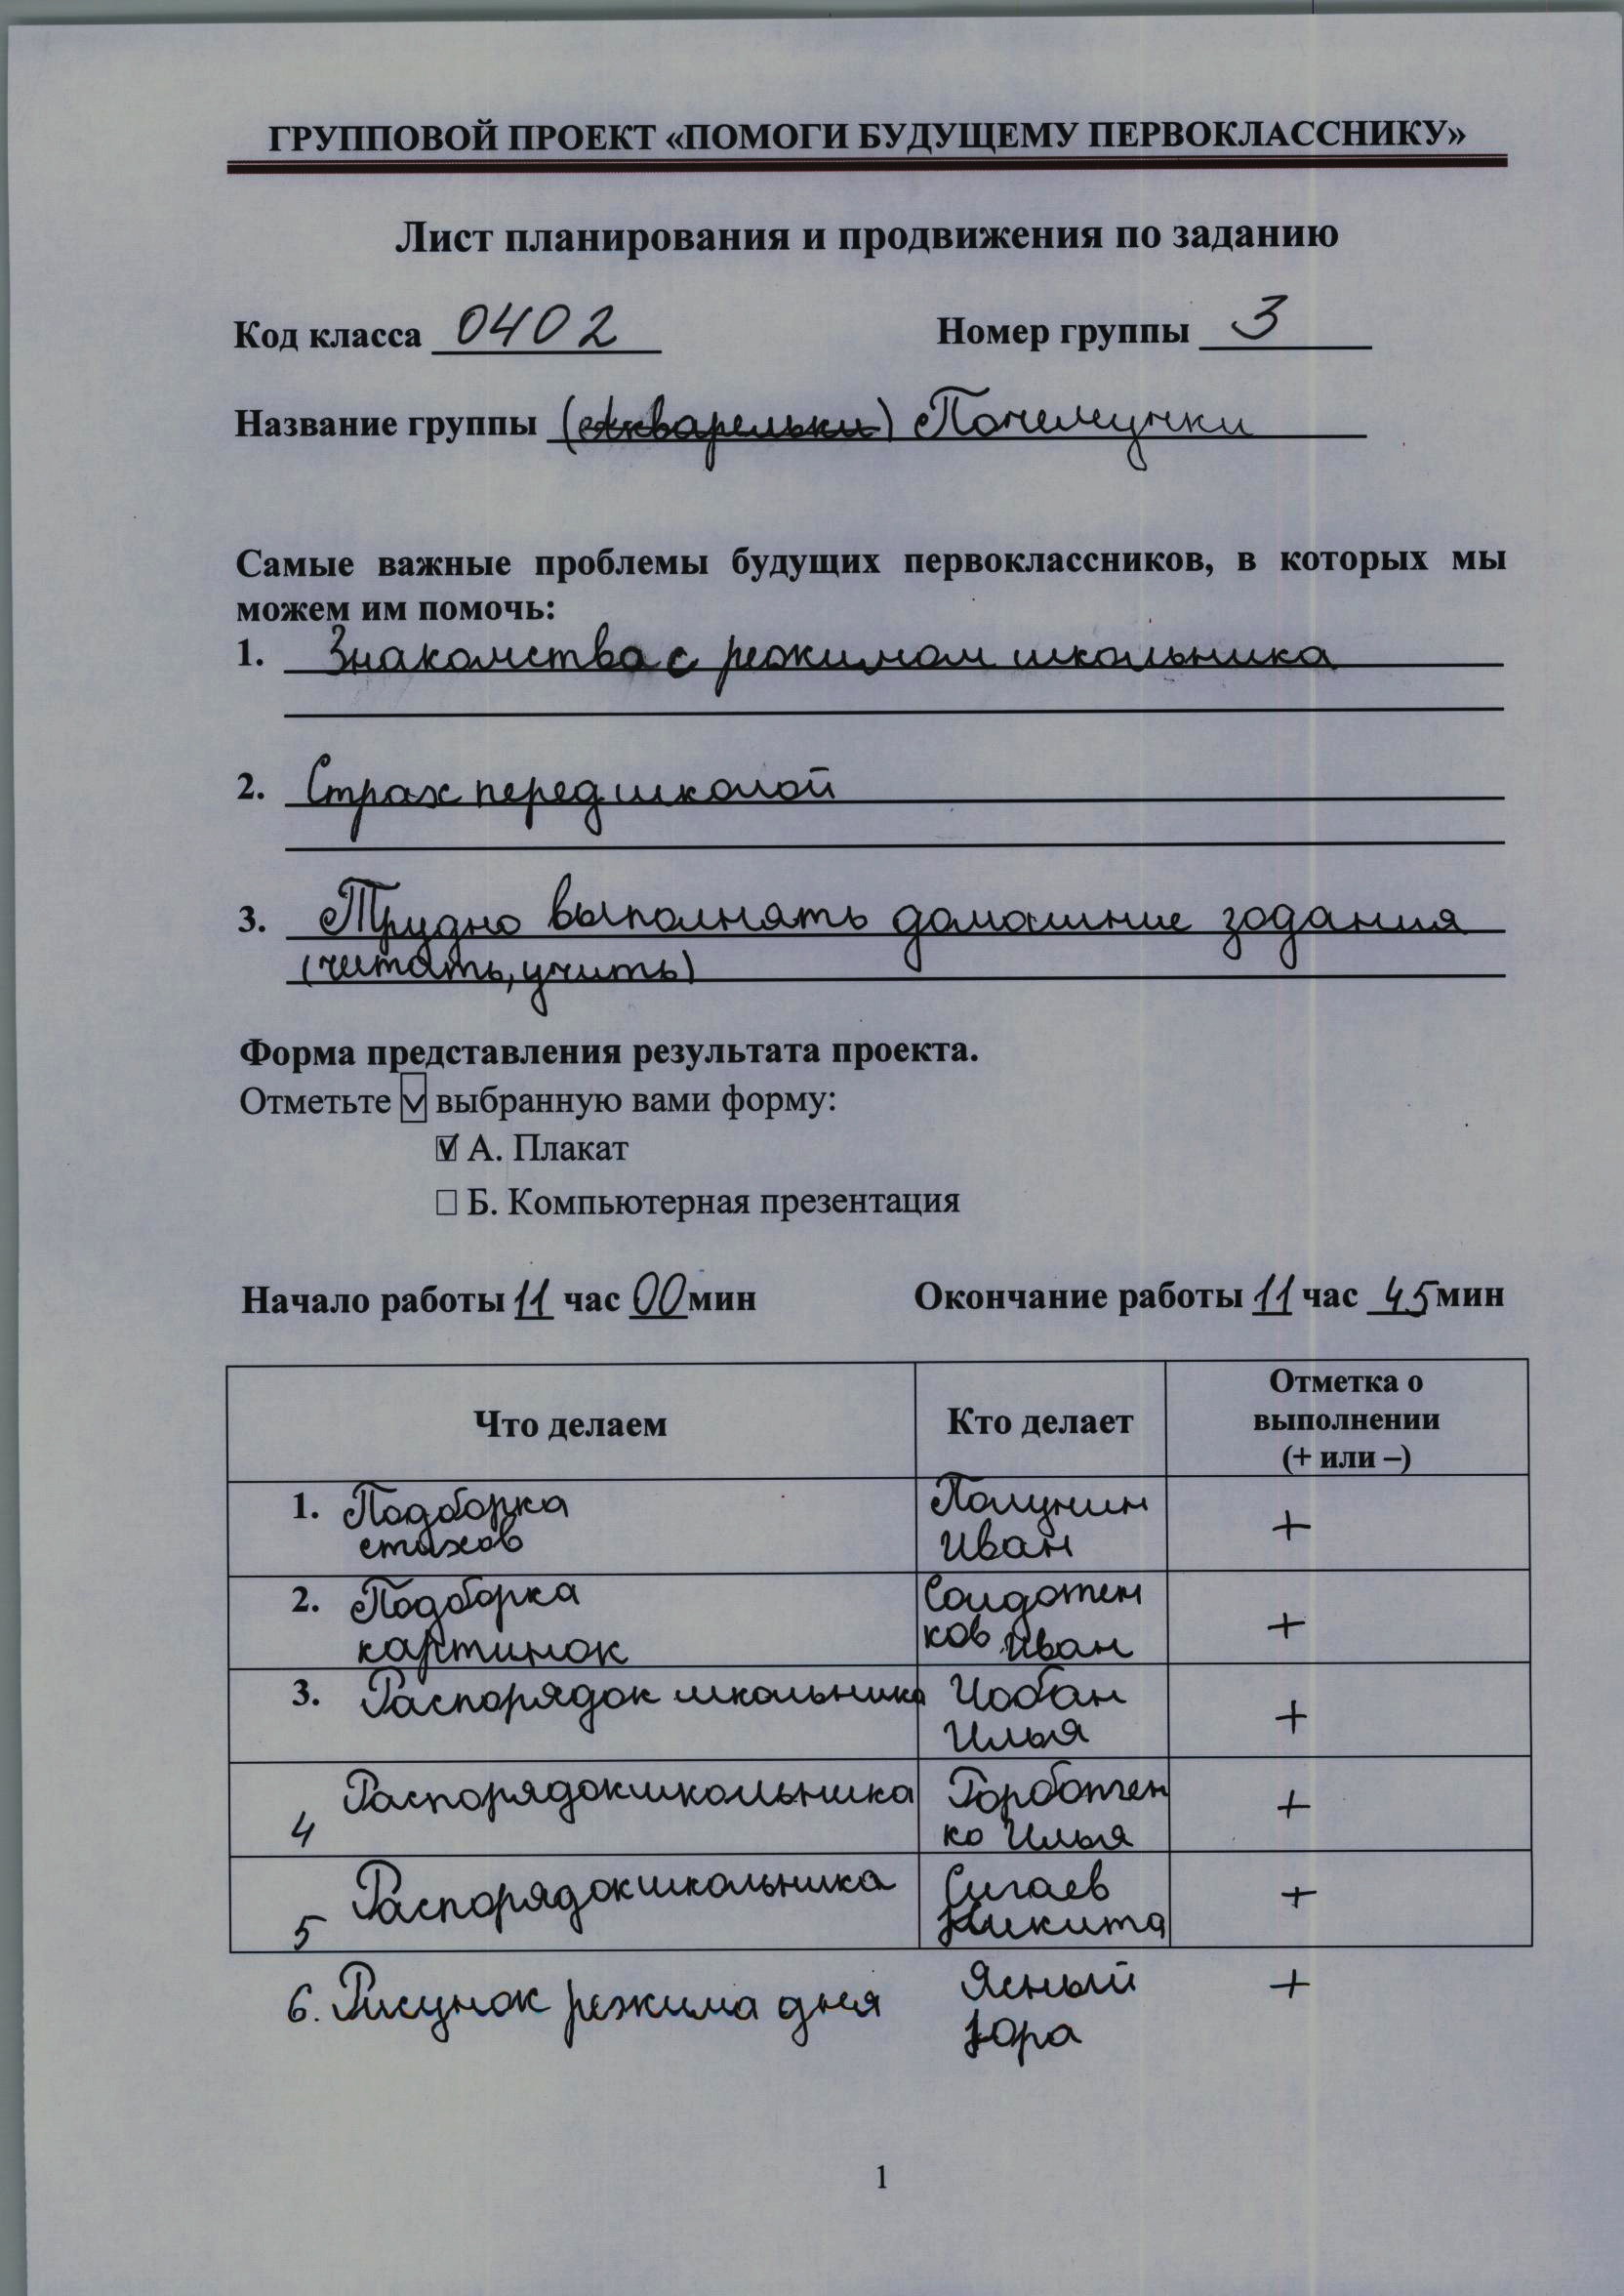 ГРУППОВОЙ ПРОЕКТ «ПОМОГИ БУДУЩЕМУ ПЕРВОКЛАССНИКУ»
Лист планирования и продвижения по заданию
Код класса 0402 Номер группы 3
Название группы (Акварельки) Почемучки
Самые важные проблемы будущих первоклассников, в которых мы
можем им помочь:
1. Знакомства с режимом школьника
2. Страх перед школой
3. Трудно выполнять домашние зодания
(читать, учить)
Форма представления результата проекта.
Отметьте выбранную вами форму:
А. Плакат
Б. Компьютерная презентация
Начало работы 11 час 00 мин Окончание работы 11 час 45 мин
Отметка о
Что делаем Кто делает выполнении
(+ или –)
1. Подборка Полунин +
стихов Иван
2. Подборка Солдатен +
картинок ков Иван
3. Распорядок школьника Чобан +
Илья
4 Распорядок школьника Горботен +
ко Илья
5 Распорядок школьника Сигаев +
Никита
6. Рисунок режима дня Ясный +
Юра
1